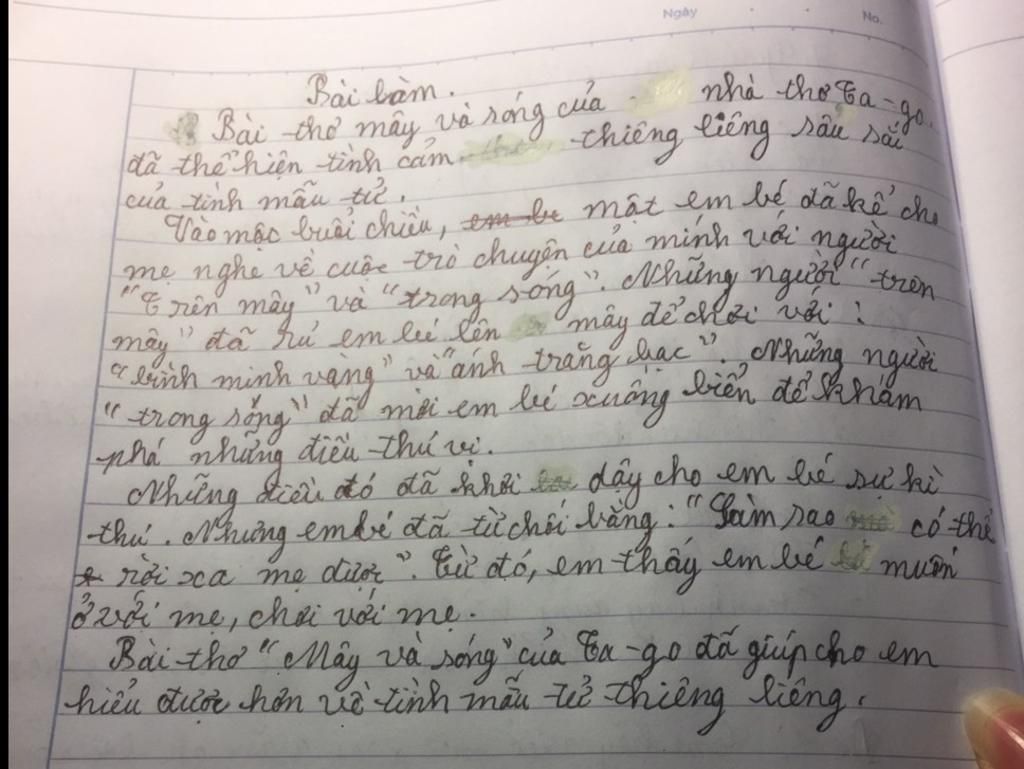 Ngày No.
Bài làm.
Bài thơ mây và sóng của nhà thơ Ta-go.
đã thể hiện tình cảm thiêng liêng sâu sắc
của tình mẫu tử.
Vào một buổi chiều, em bé một em bé đã kể cho
mẹ nghe về cuộc trò chuyện của mình với người
"Trên mây" và "trong sóng". Những người "trên
mây" đã rủ em bé lên mây để chơi với:
"bình minh vàng" và "ánh trăng bạc". Những người
"trong sóng" đã mời em bé xuống biển để khám
phá những điều thú vị.
Những điều đó đã khơi dậy cho em bé sự kì
thú. Nhưng em bé đã từ chối bằng: "Làm sao có thể
rời xa mẹ được". Từ đó, em thấy em bé muốn
ở với mẹ, chơi với mẹ.
Bài thơ "Mây và sóng" của Ta-go đã giúp cho em
hiểu được hơn về tình mẫu tử thiêng liêng.